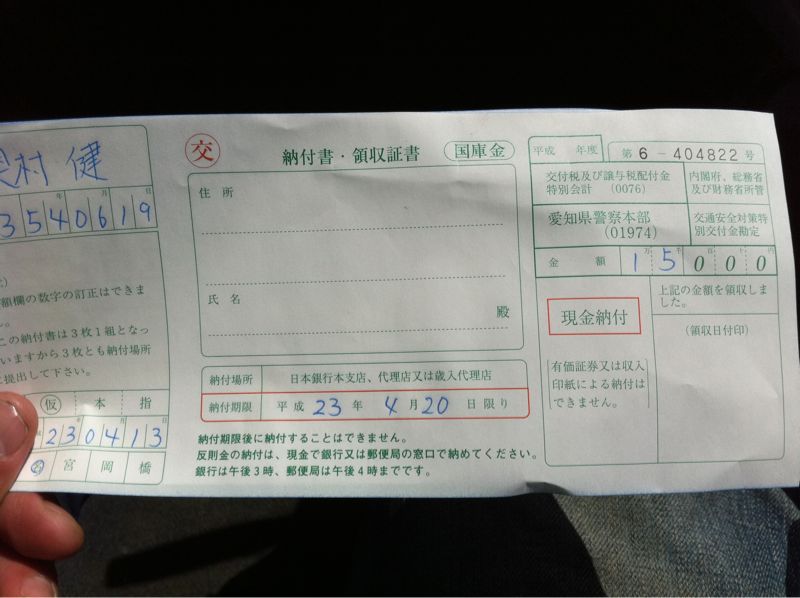 村 健
年 月 日
3540619
額欄の数字の訂正はできま
ん。
この納付書は3枚1組となっ
いますから3枚とも納付場所
に提出して下さい。
仮 本 指
230413
名 宮 岡 橋
交 納付書・領収証書 国庫金
住所
氏名
殿
納付場所 日本銀行本支店、代理店又は歳入代理店
納付期限 平成 23 年 4 月 20 日限り
納付期限後に納付することはできません。
反則金の納付は、現金で銀行又は郵便局の窓口で納めてください。
銀行は午後3時、郵便局は午後4時までです。
平成 年度 第 6 - 404822 号
交付税及び譲与税配付金
特別会計 (0076)
内閣府、総務省
及び財務省所管
愛知県警察本部
(01974)
交通安全対策特
別交付金勘定
金額 1万 5千 0百 0十 0円
現金納付
有価証券又は収入
印紙による納付は
できません。
上記の金額を領収しま
した。
(領収日付印)